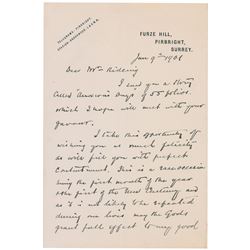 TELEGRAMS, PIRBRIGHT.
FURZE HILL,
PIRBRIGHT,
SURREY.
Jan 9th 1901
Dear Mrs Rideing
I send you a Story
called Anderson's Days of 55 folios
which I hope will met with your
favour.
I take this opportunity of
wishing you as much felicity
as will fill you with perfect
Contentment. This is a
the first month of the year
the first of the New Century and
as it is not likely to be repeated
during our lives may the Gods
grant full effect to my good